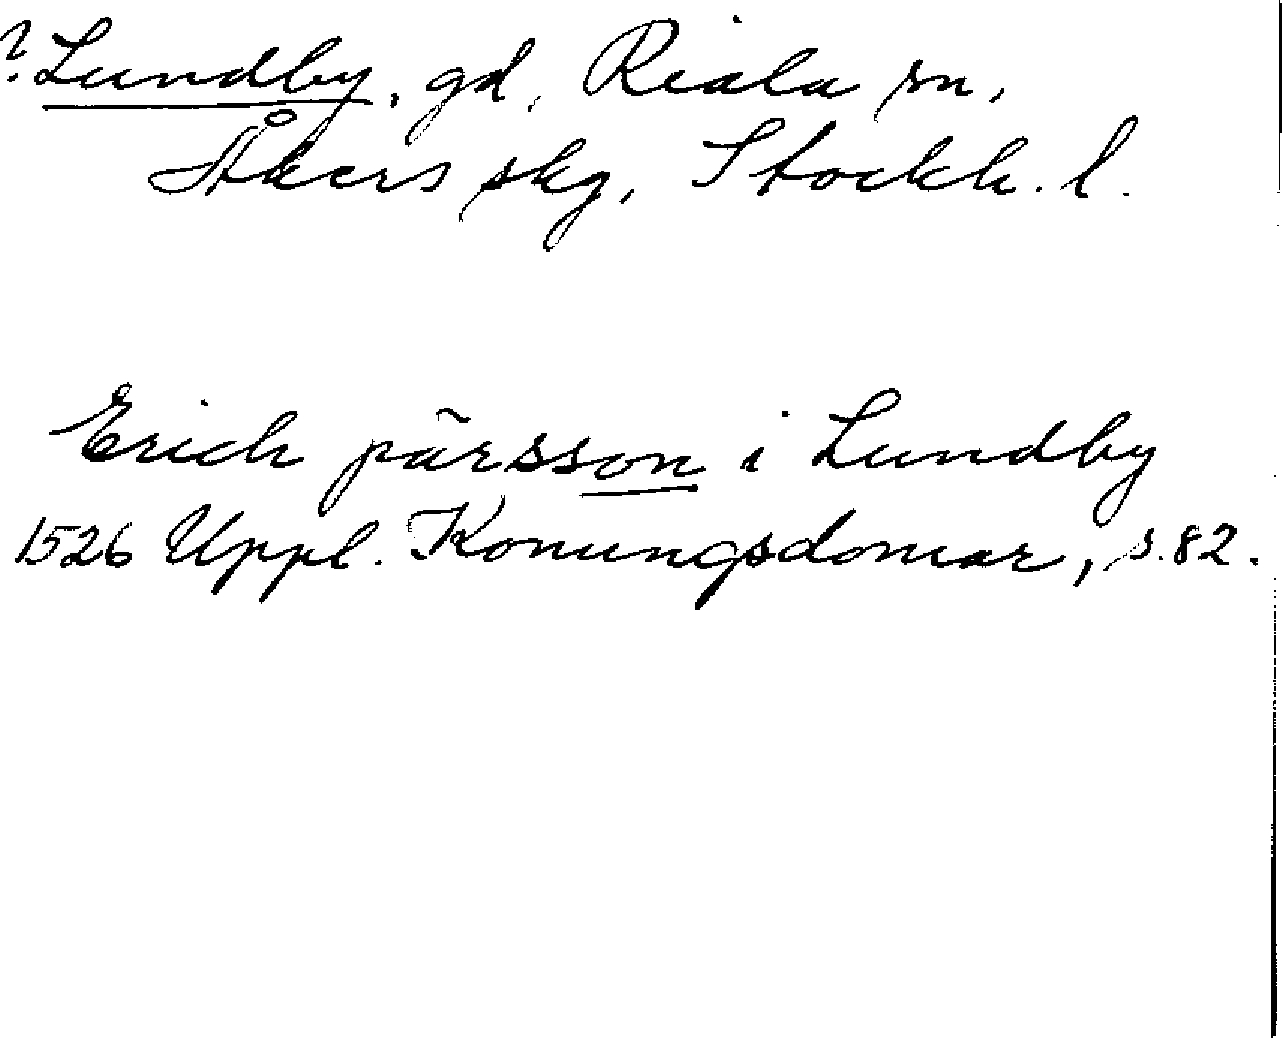 ? Lundby, gd, Riala sn,
Åkers skg, Stockh. l.
Erich pärsson i Lundby
1526 Uppl. Konungsdomar, s. 82.